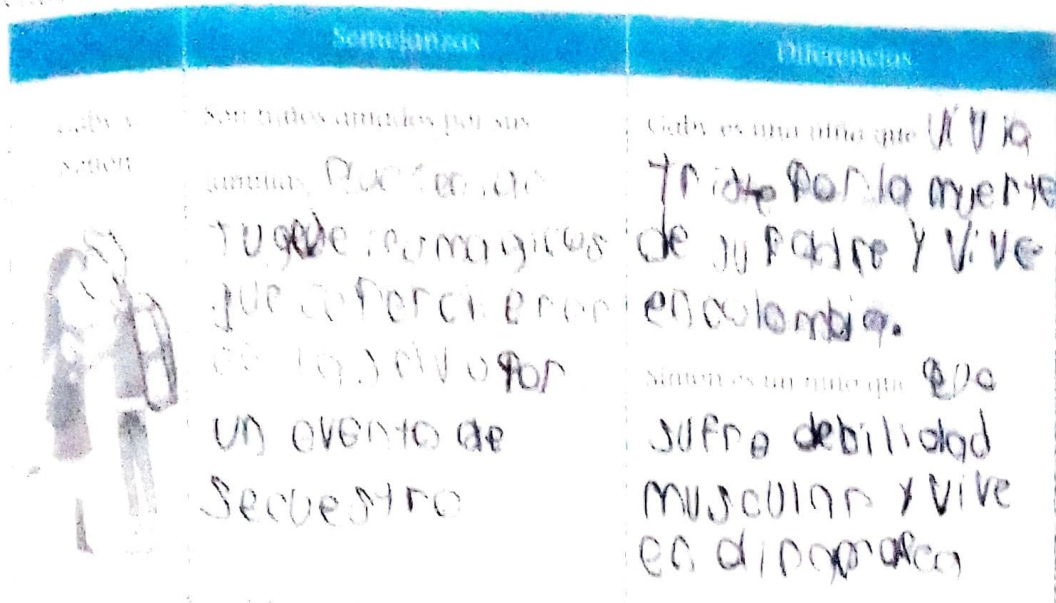 Semejanzas
Diferencias
Gaby y
Simón
Son niños amados por sus
familias. Que tenian
juguetes magicos
que
por
un evento de
secuestro
Gaby es una niña que vivia
triste por la muerte
de su padre y vive
en colombia.
Simón es un niño que
sufre debilidad
muscular y vive
en dinamarca